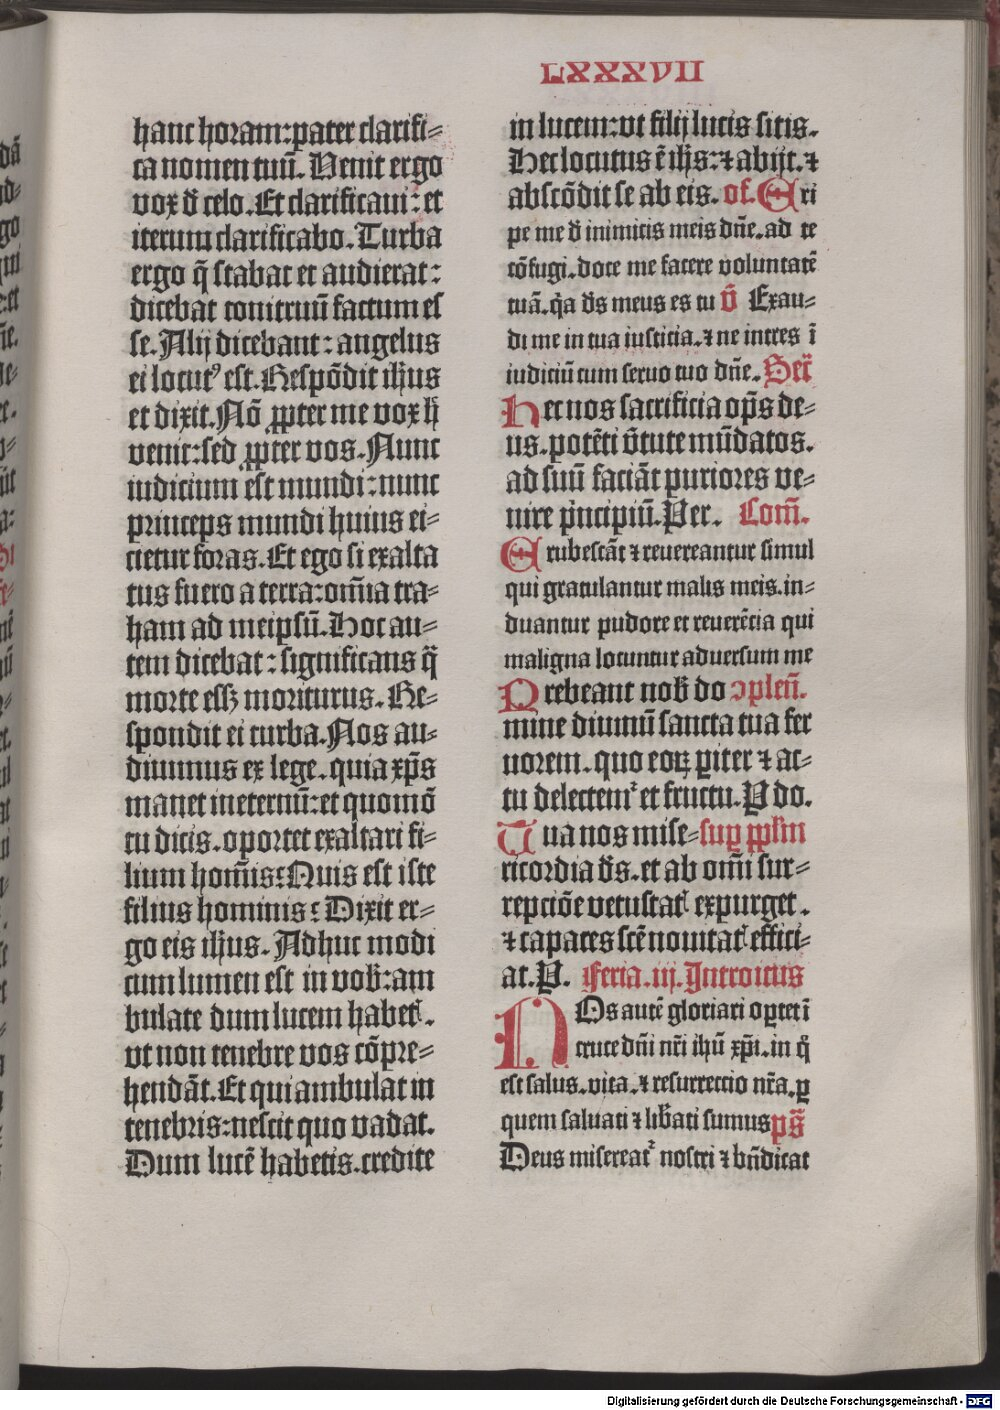 LXXXVII
hanc horam: pater clarifi⸗
ca nomen tuū. Venit ergo
vox d̄ celo. Et clarificaui: et
iterum clarificabo. Turba
ergo q̄ stabat et audierat:
dicebat tonitruū factum es
se. Alij dicebant: angelus
ei locutꝰ est. Respōdit ih̄us
et dixit. Nō ꝓpter me vox h̄
venit: sed ꝓpter vos. Nunc
iudicium est mundi: nunc
princeps mundi huius ei⸗
cietur foras. Et ego si exalta
tus fuero a terra: om̄ia tra⸗
ham ad meipsū. Hoc au⸗
tem dicebat: significans q̄
morte essꝫ moriturus. Re⸗
spondit ei turba. Nos au⸗
diuimus ex lege. quia xp̄s
manet ineternū: et quomō
tu dicis. oportet exaltari fi⸗
lium hom̄is? Quis est iste
filius hominis? Dixit er⸗
go eis ih̄us. Adhuc modi
cum lumen est in vob̄: am
bulate dum lucem habetꝭ.
vt non tenebre vos cōpre⸗
hendāt. Et qui ambulat in
tenebris: nescit quo vadat.
Dum lucē habetis. credite
in lucem: vt filij lucis sitis.
Hec locutus ē ih̄s: ⁊ abijt. ⁊
abscōdit se ab eis. of. Eri
pe me d̄ inimicis meis dn̄e. ad te
cōfugi. doce me facere voluntatē
tuā. q̇a ds̄ meus es tu v̄ Exau⸗
di me in tua iusticia. ⁊ ne intres ī
iudiciū cum seruo tuo dn̄e. Secr̄
Hec nos sacrificia op̄s de⸗
us. potēti v̄tute mūdatos.
ad suū faciāt puriores ve⸗
nire ṗncipiū. Per. Com̄.
Erubescāt ⁊ reuereantur simul
qui gratulantur malis meis. in⸗
duantur pudore et reuerētia qui
maligna locuntur aduersum me
Prebeant nob̄ do ↄplen̄.
mine diuinū sancta tua fer
uorem. quo eoꝝ ꝑiter ⁊ ac⸗
tu delectemʳ et fructu. P do.
Tua nos mise⸗ suꝑ ppl̄m
ricordia ds̄. et ab om̄i sur⸗
repciōe vetustatꝭ expurget.
⁊ capaces scē nouitatꝭ effici⸗
at. P. Feria. iij. Introitus
NOs autē gloriari oꝑtet ī
cruce dn̄i nr̄i ih̄u xp̄i. in q̇
est salus. vita. ⁊ resurrectio nr̄a. ꝑ
quem saluati ⁊ lib̄ati sumus ps̄
Deus misereatʳ nostri ⁊ bn̄dicat
Digitalisierung gefördert durch die Deutsche Forschungsgemeinschaft - DFG